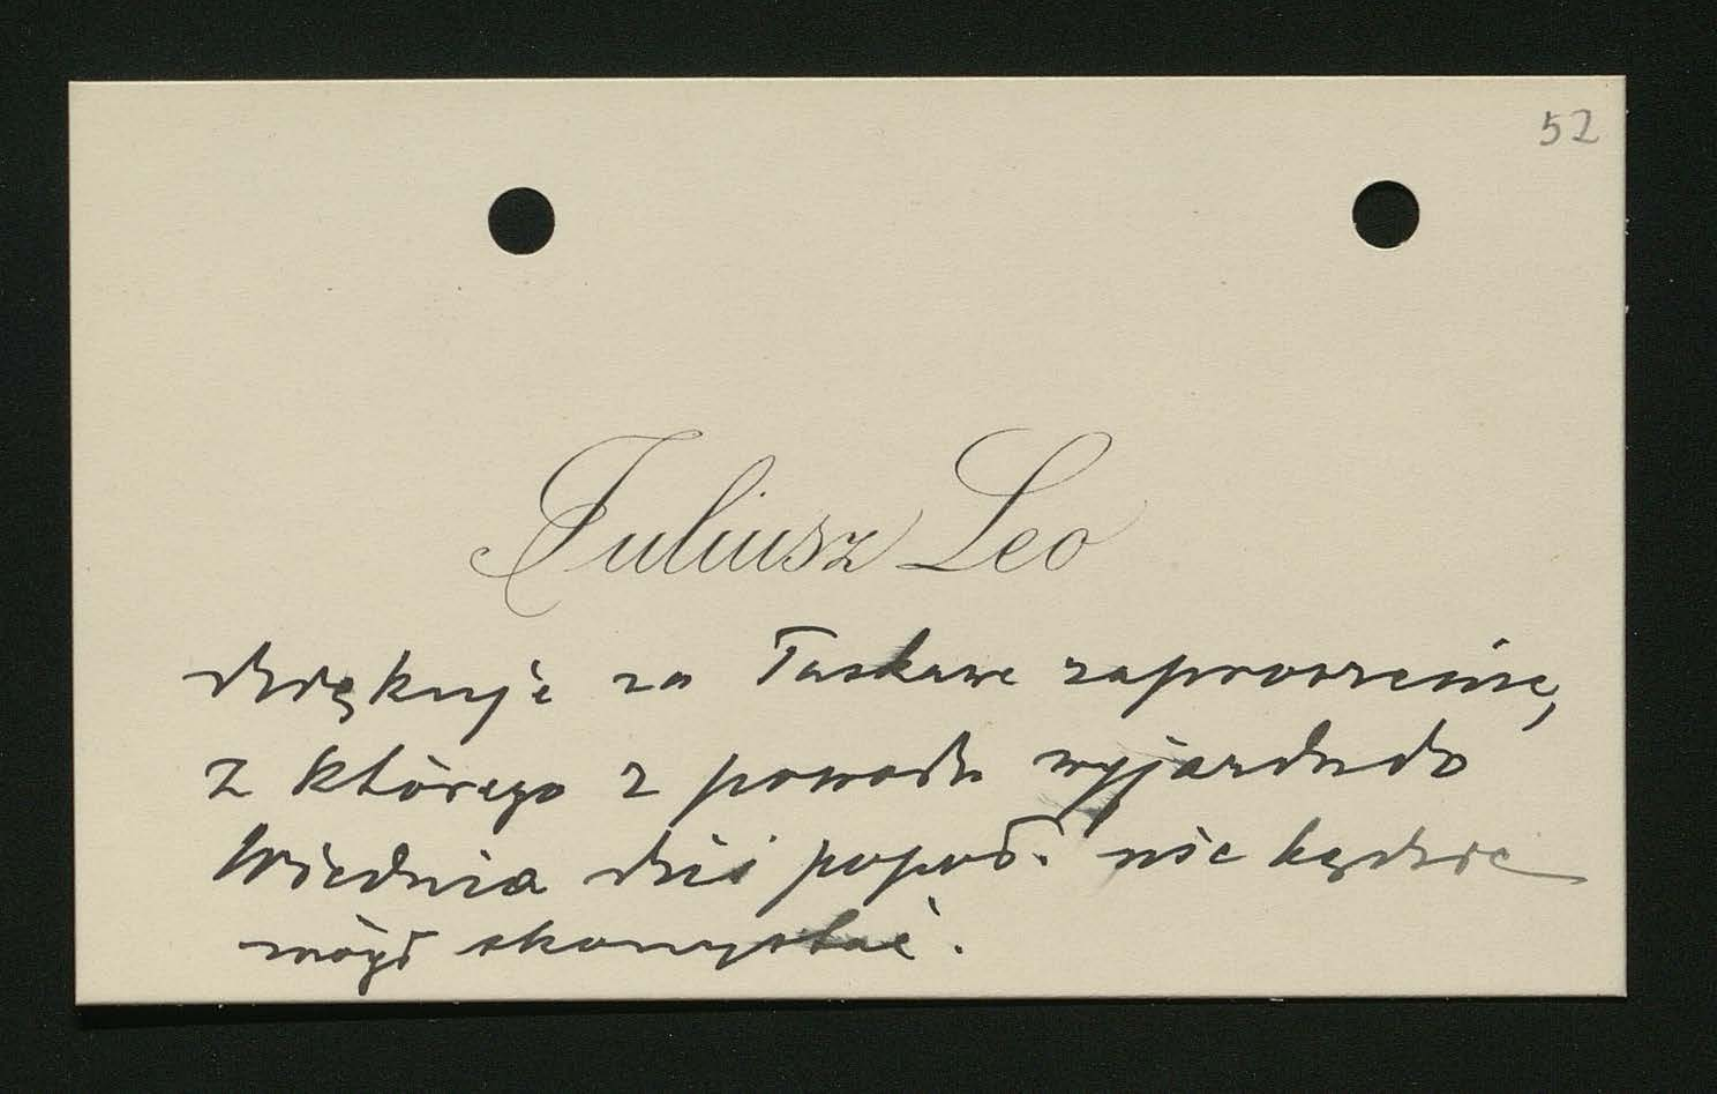 52
Juliusz Leo
dziękuje za łaskawe zaproszenie,
z którego z powodu wyjazdu do
Wiednia dziś popoł. nie będzie
mógł skorzystać.